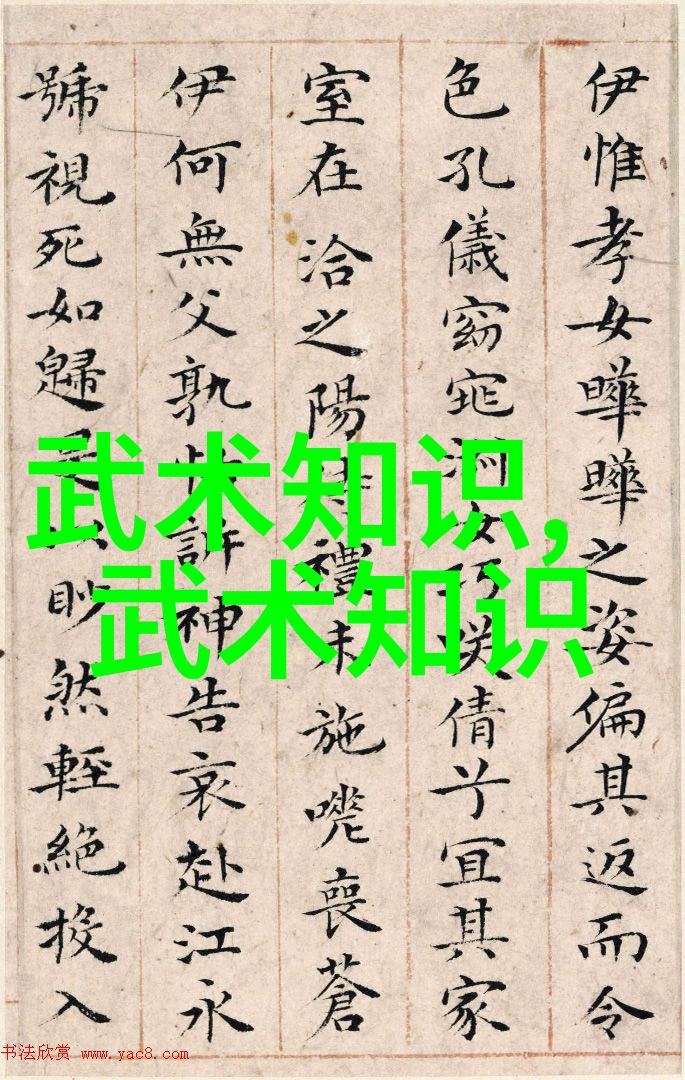 伊惟孝女曄曄之姿偏其返而令
色孔儀窈窕淑女巧咲倩兮宜其家
室在洽之陽待禮未施嗟喪蒼
伊何無父孰怙訴神告哀赴江永
號視死如歸是以眇然輕絕投入
武术知识,
武术知识
书法欣赏 www.yac8.com